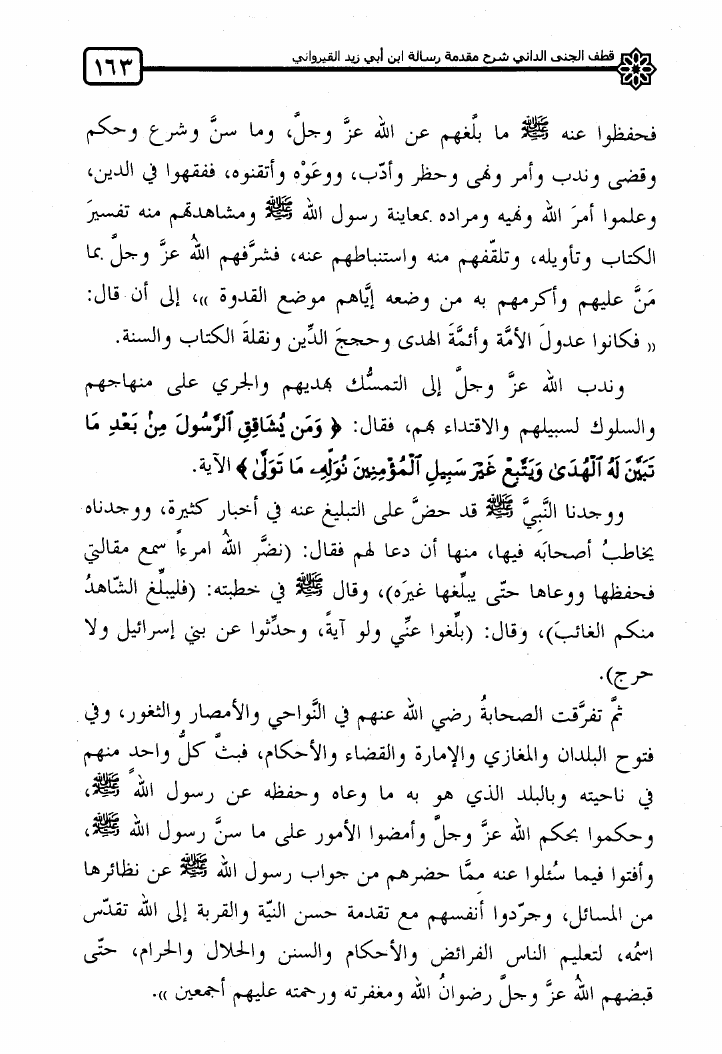 قطف الجنى الداني شرح مقدمة رسالة ابن أبي زيد القيرواني
١٦٣
فحفظوا عنه ﷺ ما بلَّغهم عن الله عزَّ وجلَّ، وما سنَّ وشرع وحكم
وقضى وندب وأمر ونهى وحظر وأدّب، ووعَوْه وأتقنوه، ففقهوا في الدين،
وعلموا أمرَ الله ونهيه ومراده بمعاينة رسول الله ﷺ ومشاهدتهم منه تفسيرَ
الكتاب وتأويله، وتلقّفهم منه واستنباطهم عنه، فشرَّفهم اللهُ عزَّ وجلَّ بما
مَنَّ عليهم وأكرمهم به من وضعه إيَّاهم موضع القدوة »، إلى أن قال:
« فكانوا عدولَ الأمَّة وأئمَّةَ الهدى وحججَ الدِّين ونقلةَ الكتاب والسنة.
وندب الله عزَّ وجلَّ إلى التمسُّك بهديهم والجري على منهاجهم
والسلوك لسبيلهم والاقتداء بهم، فقال: ﴿ وَمَن يُشَاقِقِ ٱلرَّسُولَ مِنۢ بَعْدِ مَا
تَبَيَّنَ لَهُ ٱلْهُدَىٰ وَيَتَّبِعْ غَيْرَ سَبِيلِ ٱلْمُؤْمِنِينَ نُوَلِّهِۦ مَا تَوَلَّىٰ ﴾ الآية.
ووجدنا النَّبيَّ ﷺ قد حضَّ على التبليغ عنه في أخبار كثيرة، ووجدناه
يخاطبُ أصحابَه فيها، منها أن دعا لهم فقال: (نضَّر اللهُ امرءاً سمع مقالتي
فحفظها ووعاها حتّى يبلِّغها غيرَه)، وقال ﷺ في خطبته: (فليبلِّغ الشّاهدُ
منكم الغائبَ)، وقال: (بلِّغوا عنِّي ولو آيةً، وحدِّثوا عن بني إسرائيل ولا
حرج).
ثمَّ تفرَّقت الصحابةُ رضي الله عنهم في النَّواحي والأمصار والثغور، وفي
فتوح البلدان والمغازي والإمارة والقضاء والأحكام، فبثَّ كلُّ واحدٍ منهم
في ناحيته وبالبلد الذي هو به ما وعاه وحفظه عن رسول الله ﷺ،
وحكموا بحكم الله عزَّ وجلَّ وأمضوا الأمور على ما سنَّ رسول الله ﷺ،
وأفتوا فيما سُئلوا عنه ممَّا حضرهم من جواب رسول الله ﷺ عن نظائرها
من المسائل، وجرّدوا أنفسهم مع تقدمة حسن النيّة والقربة إلى الله تقدّس
اسمُه، لتعليم الناس الفرائض والأحكام والسنن والحلال والحرام، حتّى
قبضهم اللهُ عزَّ وجلَّ رضوانُ الله ومغفرته ورحمته عليهم أجمعين ».